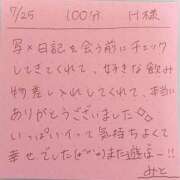 7/25 100分 H様
写メ日記も会う前にチェック
してきてくれて、好きな飲み
物差し入れしてくれて、本当に
ありがとうございました
いっぱいイって気持ちよくて
幸せでした(^^)また遊ぼー!!
みと